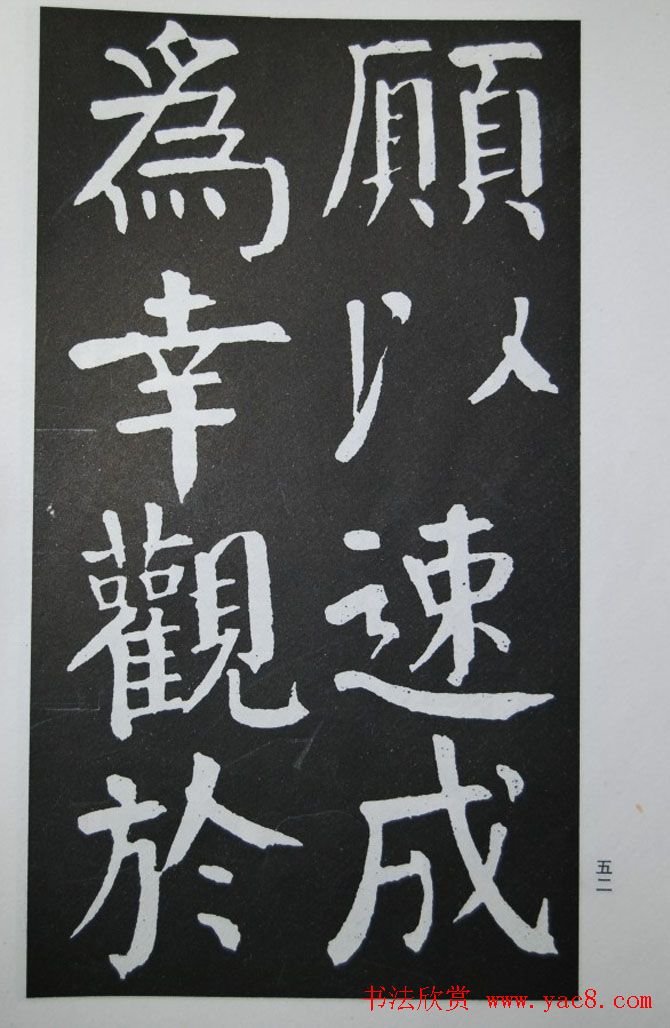 願以速成
為幸觀於
五二
书法欣赏 www.yac8.com